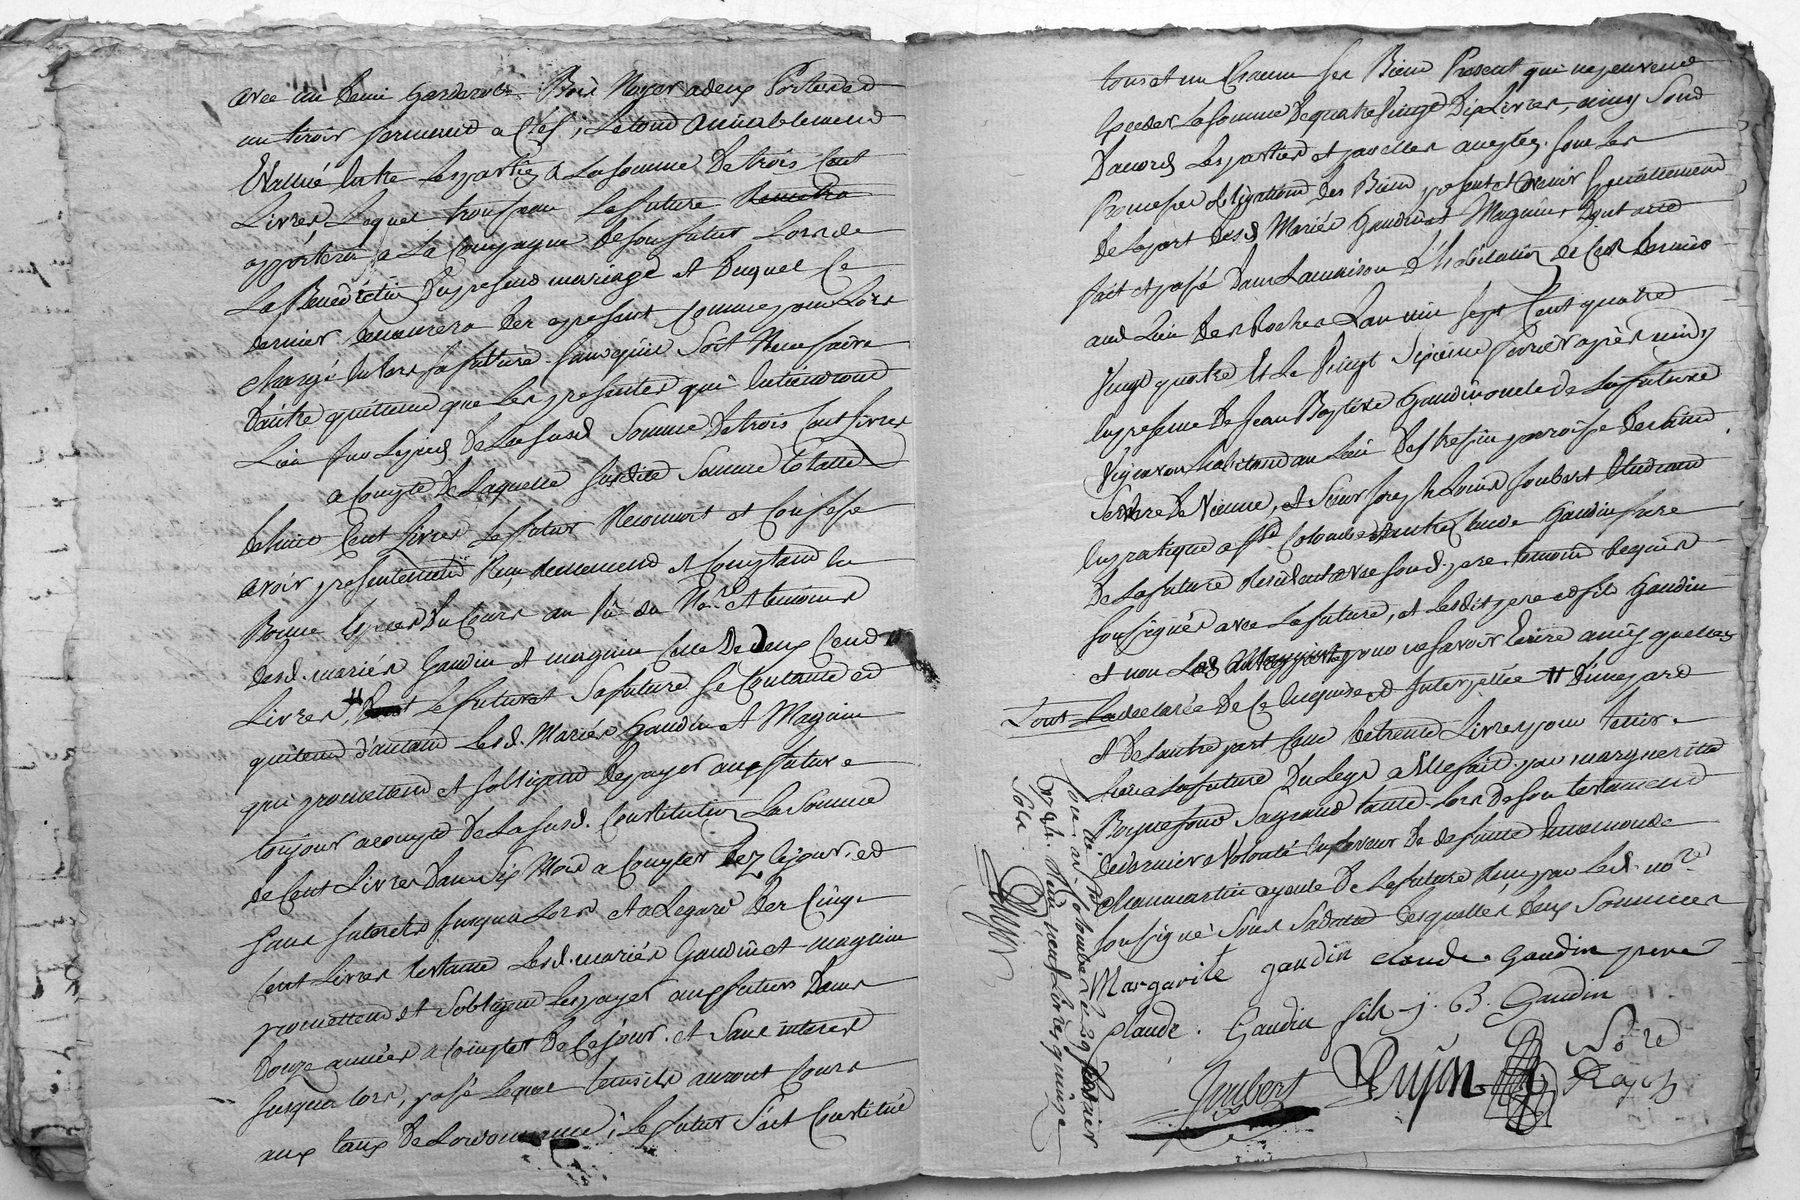 avec un demi Garderobe Bois Noyer a deux Portes et
un tiroir fermant a Clef, Letout amiablement
Evallué Entre Lesparties a Lasomme de trois Cent
Livres, Lequel trousseau Lafuture
apportera a La Compagnie desonfutur Lors de
La Benediction dupresent mariage et duquel Ce
dernier demeurera des apresent Comme pour Lors
chargé Envers safuture sansquil Soit Necessaire
dautre quittance que Les presentes qui Entiendront
Lieu Sur Lepied de Lasusd. Somme de trois Cent Livres
a Compte de Laquelle susdite Somme totalle
de huit Cent Livres Lefutur Reconnoit et Confesse
avoir presentement Reçu Reellement et Comptant En
Bonne Espece du Cours au vû du No.re et temoins
desd. mariés Gaudin et magnin Celle de deux Cent
Livres, # Lefutur et Safuture se Contantent et
quittent d'autant Lesd. Mariés Gaudin et Magnin
qui promettent et sobligent depayer auxfuturs
toujour acompte de Lasusd. Constitution La Somme
de Cent Livres Dans six Mois a Compter dez Cejour, et
sans Interets Jusqua Lors et a Legard des Cinq
Cent Livres restante Lesd. mariés Gaudin et magnin
promettent et Sobligent Lespayer auxfuturs dans
douze années a Compter de Cejour, et Sans interet
Jusqua Lors, passé Lequel tems ils auront Cours
aux taux de Lordonnance; Lefutur S'est Constitué
tous et un Chacun ses Biens Present qui nepeuvent
Exceder Lasomme dequatre vingt Dix Livres, ainsy Sont
Daccord Lesparties et par elles accepté sous Les
Promesses obligations des Biens present et avenir specialement
de Lapart desd. Mariés Gaudin et Magnin dont acte
fait et passé dans Lamaison d'habitation de Ces dernies
aud. Lieu des Roches Lan mil sept Cent quatre
vingt quatre et Le vingt Sixieme fevrier après midy
Enpresence de Jean Baptiste Gaudin oncle de Lafuture
vigneron habitant au Lieu parroisse de
de Vienne, et Sieur Joseph Louis Joubert Etudiant
Enpratique a St Colombe et autre Claude Gaudin frere
de Lafuture Residentavec sond. pere temoins Requis
soussignés avec Lafuture, et Lesdit pere et fils Gaudin
et non Les pour nesavoir Ecrire ainsy quelles
Lont declarée de Ce Enquise et Interpellée # d'une part
et de Lautre part Celle de trente Livres pour tenir
Lieu a Lafuture du Legs a Elle fait par marguerite
Sagrand tante Lors de son testament
de dernière volonté Enfaveur de defunte
ayeule de Lafuture Reçu par Led. no.re
soussigné Sous Sadatte desquelles deux Sommes
Margarite gaudin claude Gaudin pere
claude Gaudin fils j. B. Gaudin
Joubert Dujon No.re Royal
Conlle à Ste Colombe Le 29 fevrier
1784. Reçu neuf Livres quinze
Sols.
Dujon